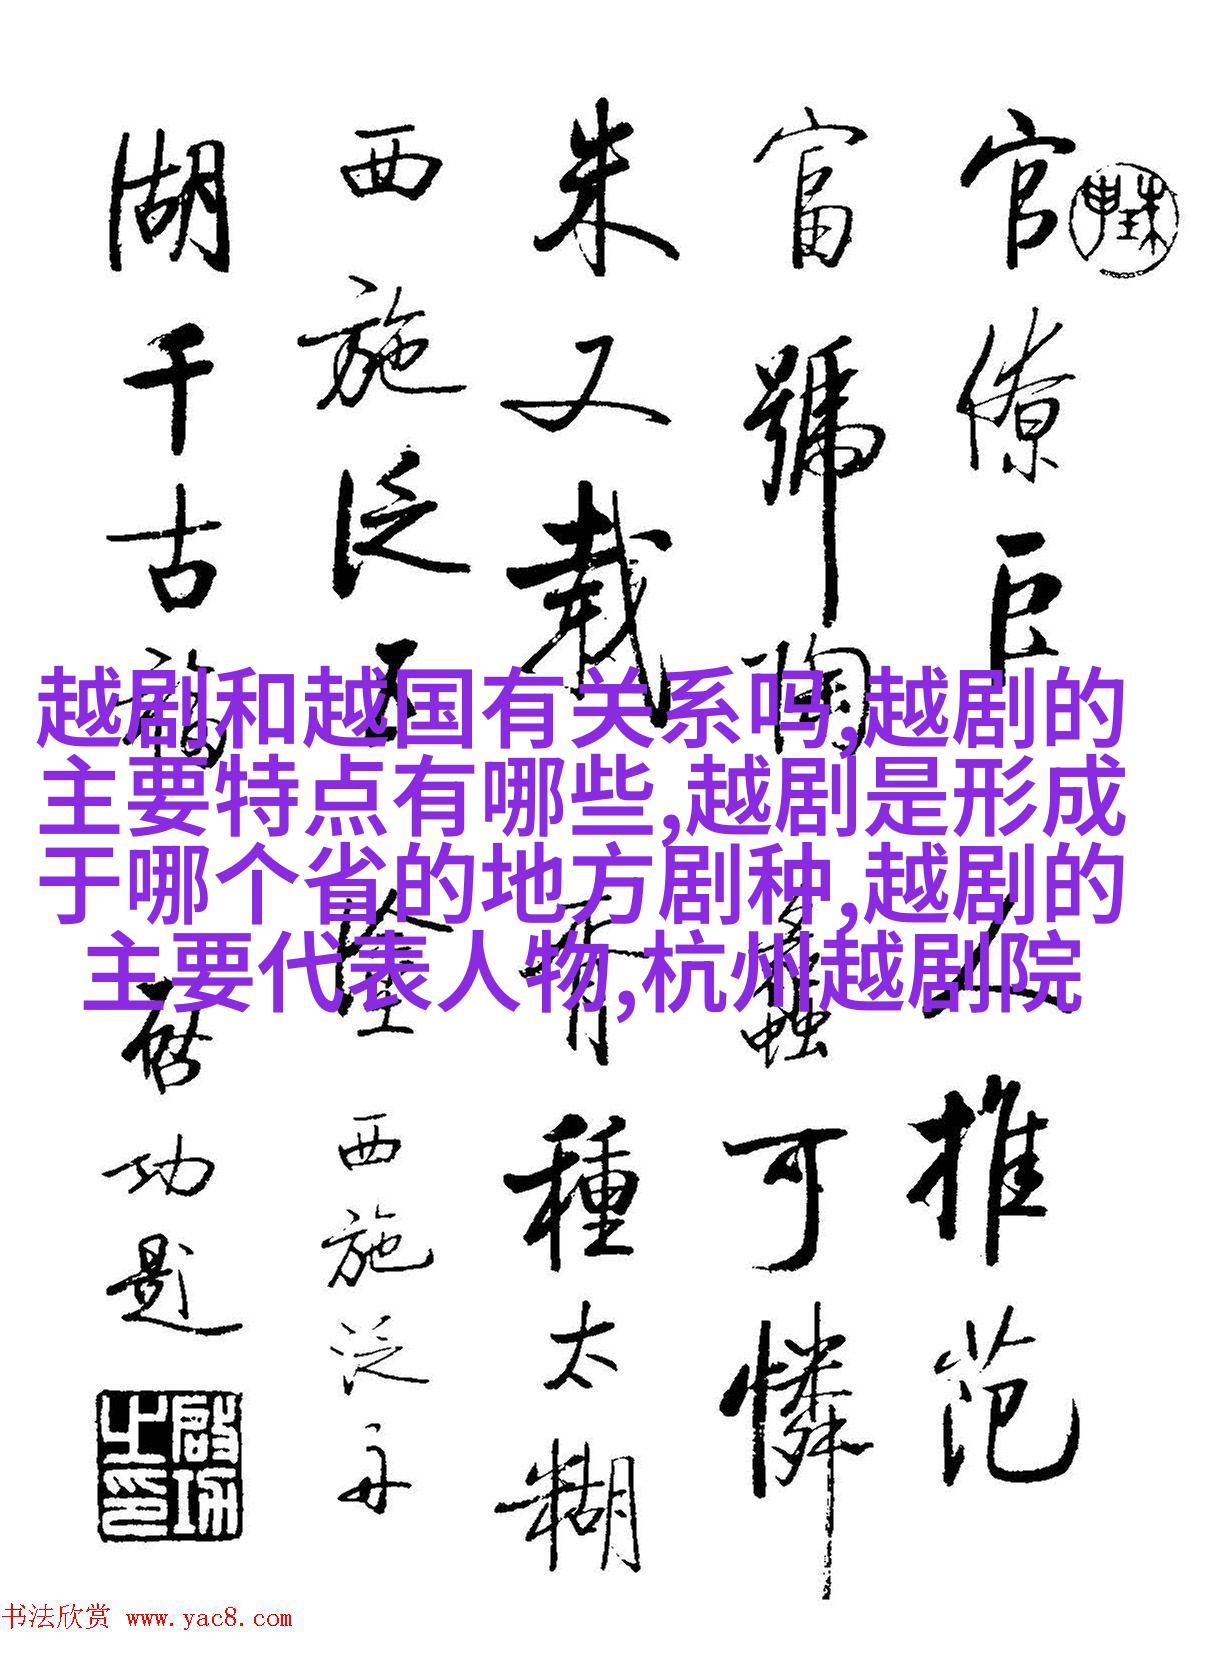 越剧和越国有关系吗,越剧的
主要特点有哪些,越剧是形成
于哪个省的地方剧种,越剧的
主要代表人物,杭州越剧院
官僚巨人推范
富號陶蠡可憐
朱又載有種太糊
西施泛五
西施泛舟
湖千古
啟功題
啟功之印
书法欣赏 www.yac8.com